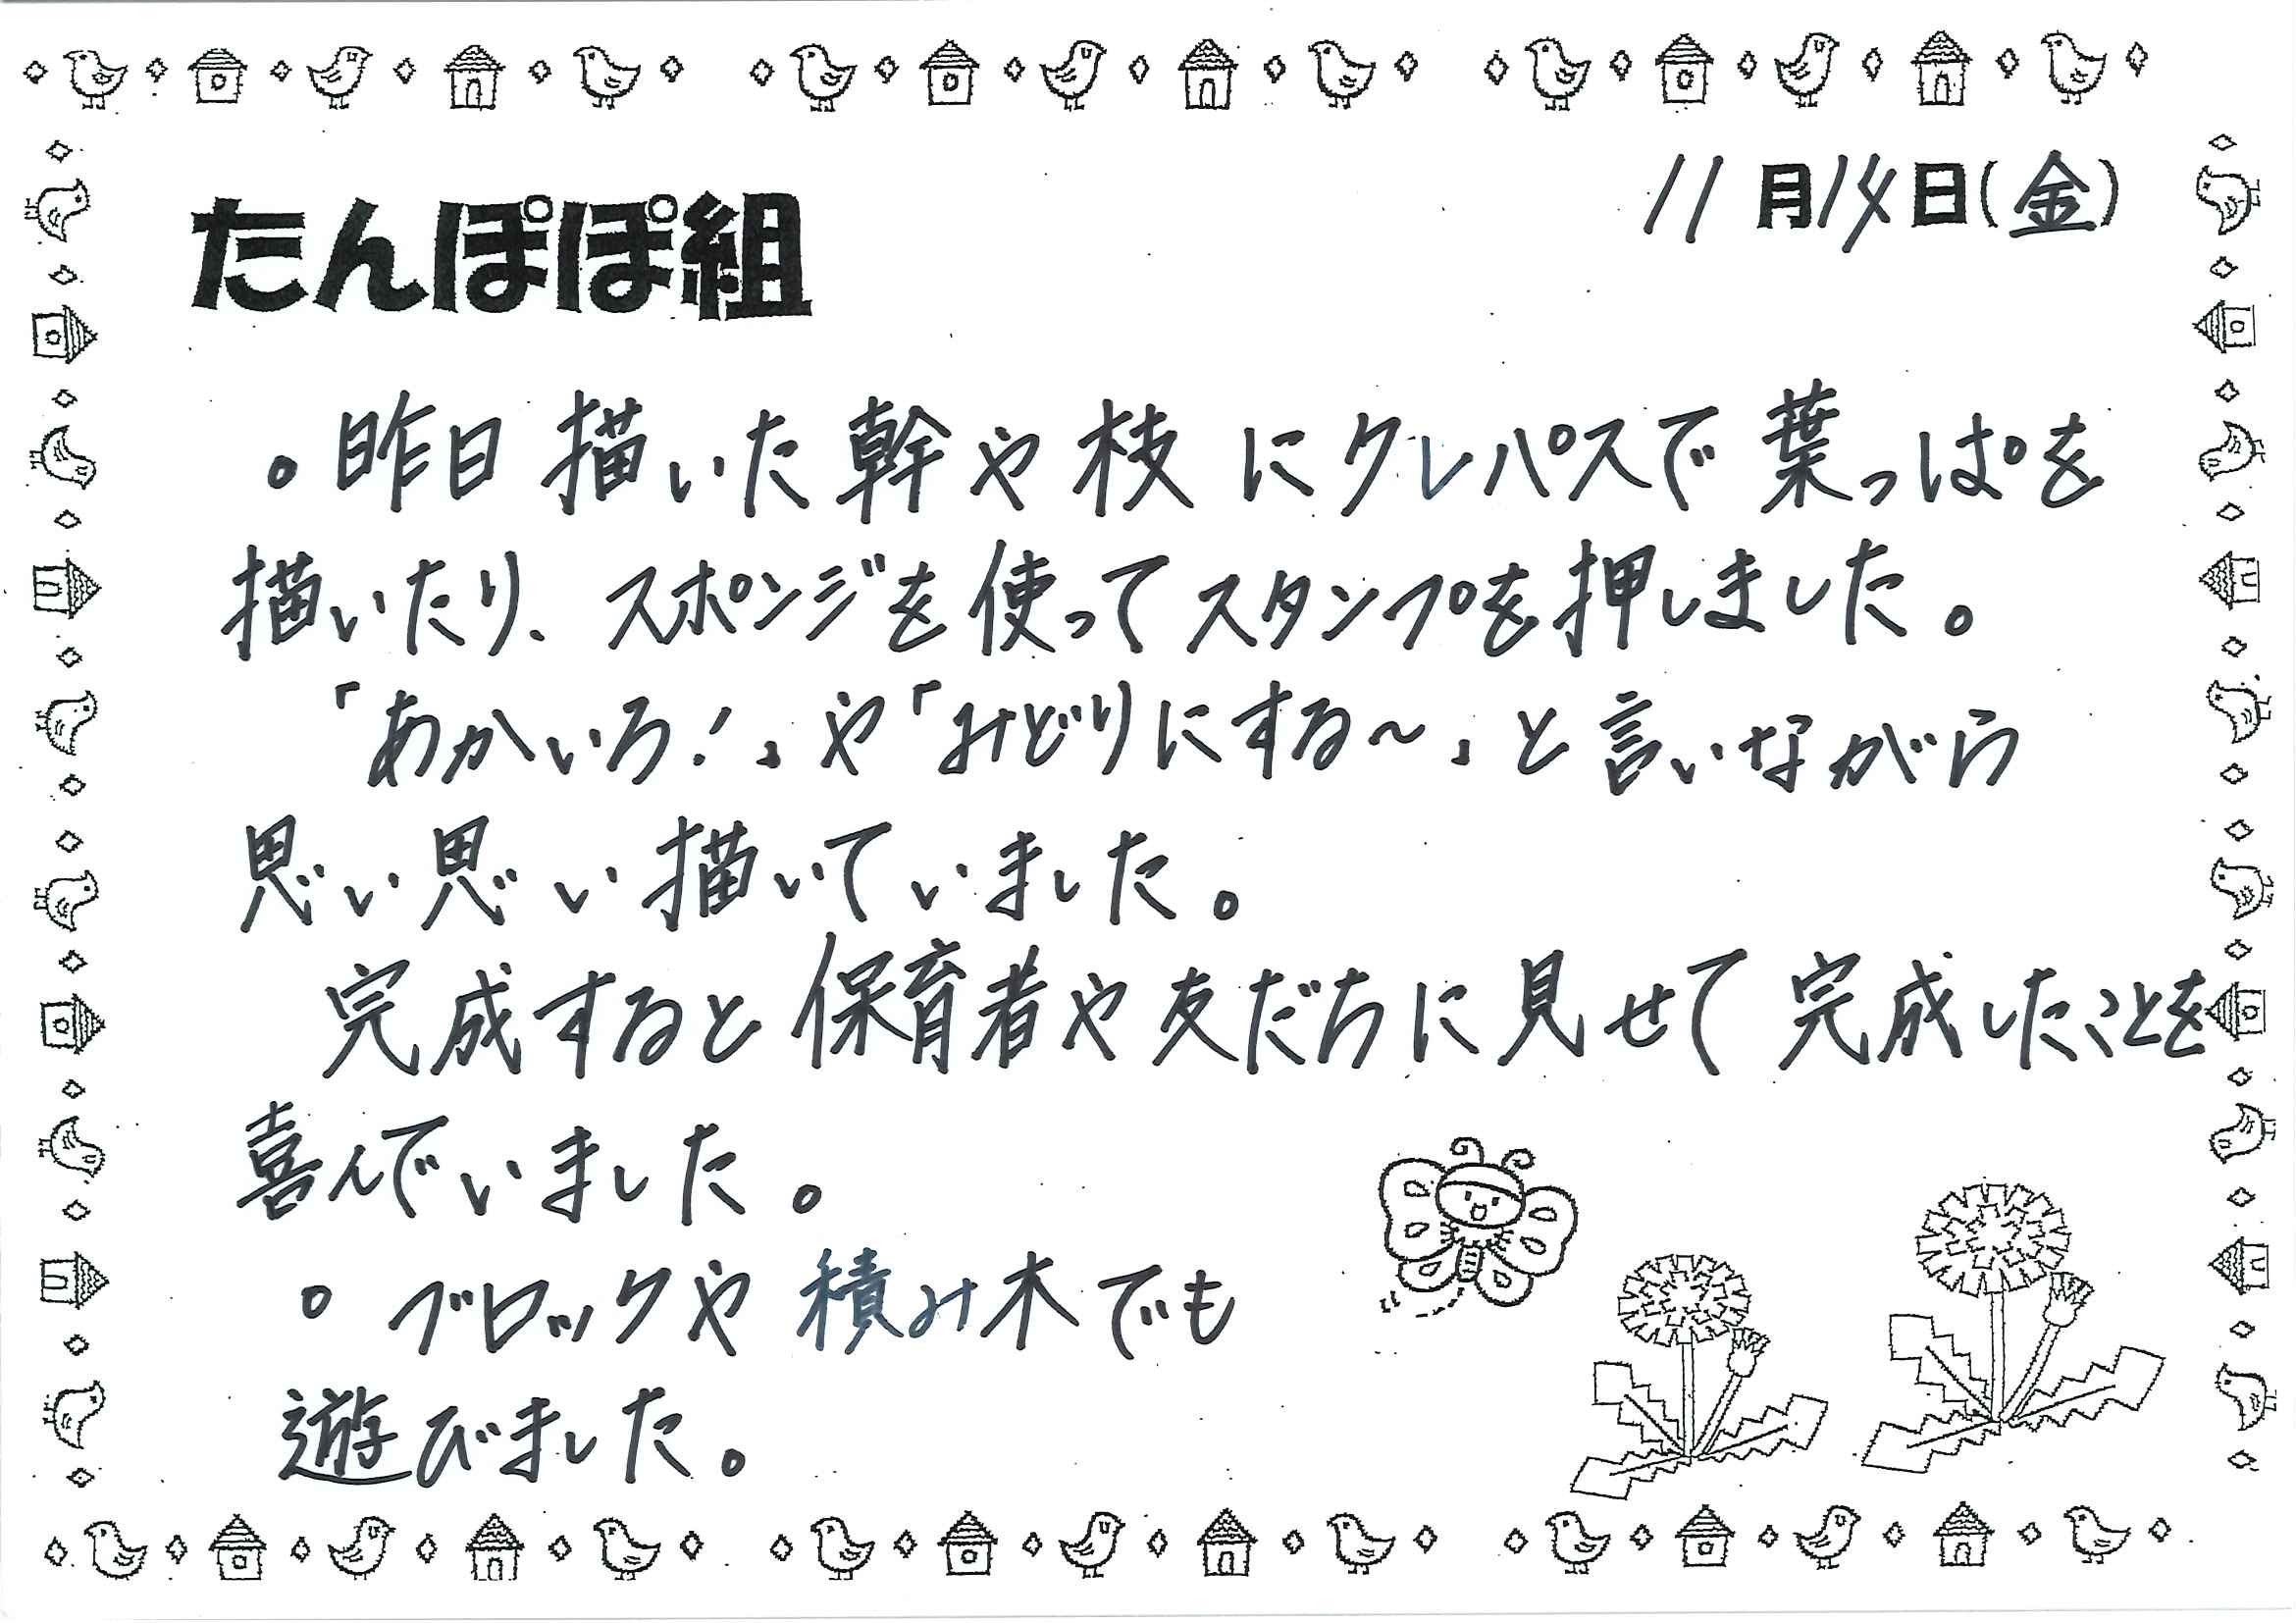 11月14日(金)
たんぽぽ組
。昨日描いた幹や枝にクレパスで葉っぱを
描いたり、スポンジを使ってスタンプを押しました。
「あかいろ!」や「みどりにする～」と言いながら
思い思い描いていました。
完成すると保育者や友だちに見せて完成したことを
喜んでいました。
。ブロックや積み木でも
遊びました。